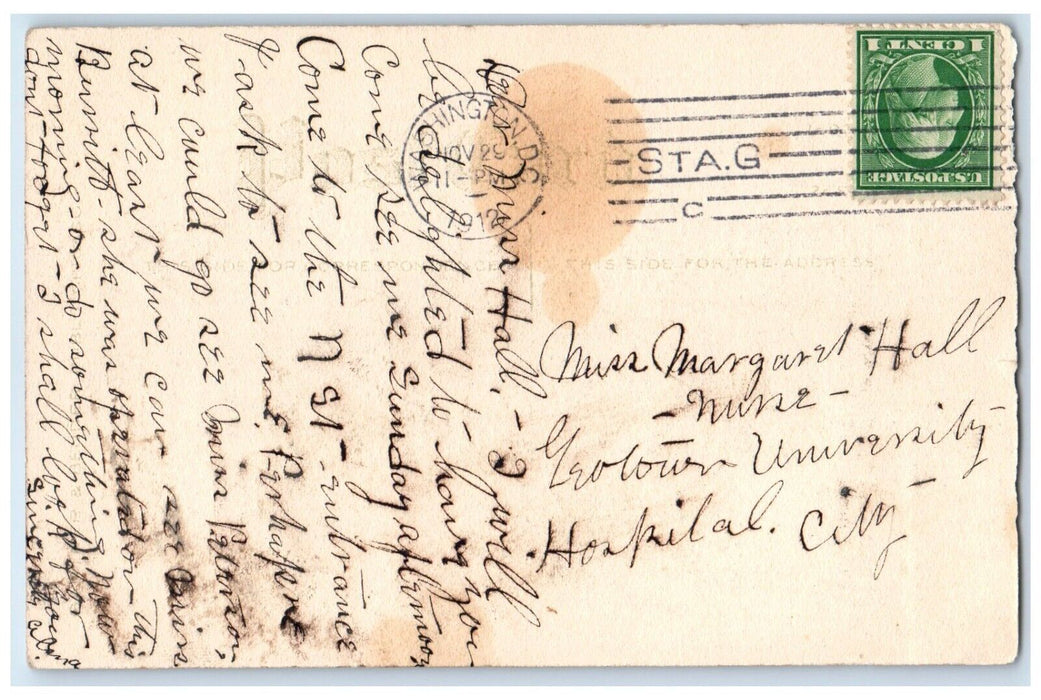 WASHINGTON, D.C.
NOV 29
11-PM
1912
STA.G
C
1 CENT 1
U.S. POSTAGE
THIS SIDE FOR CORRESPONDENCE THIS SIDE FOR THE ADDRESS
Miss Margaret Hall
- Nurse -
Geotown University
Hospital. City
Dear Miss Hall, - I will
be delighted to have you
Come see me Sunday afternoon
Come to the N St - entrance
& ask to see me. Perhaps
we could go see Miss
at least we can see Miss
she was operated on this
morning - or do something. Now
don't forget - I shall look for
you